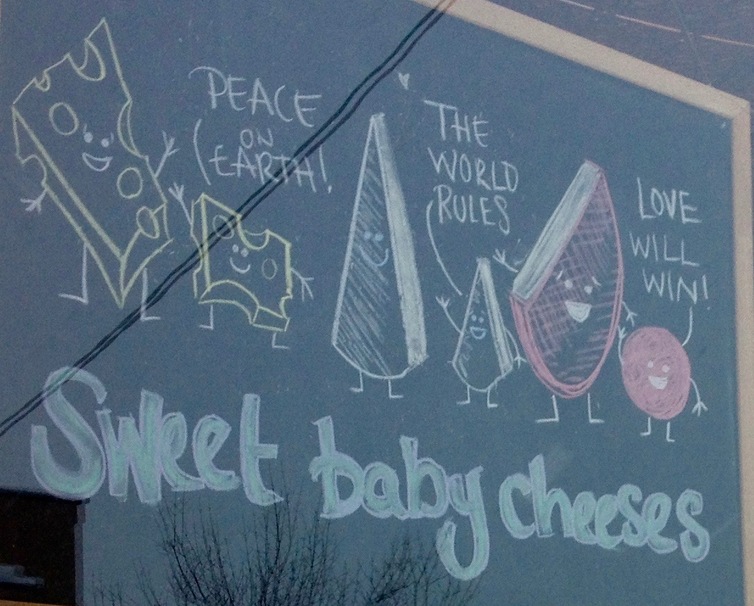 PEACE
ON
EARTH!
THE
WORLD
RULES
LOVE
WILL
WIN!
Sweet baby cheeses